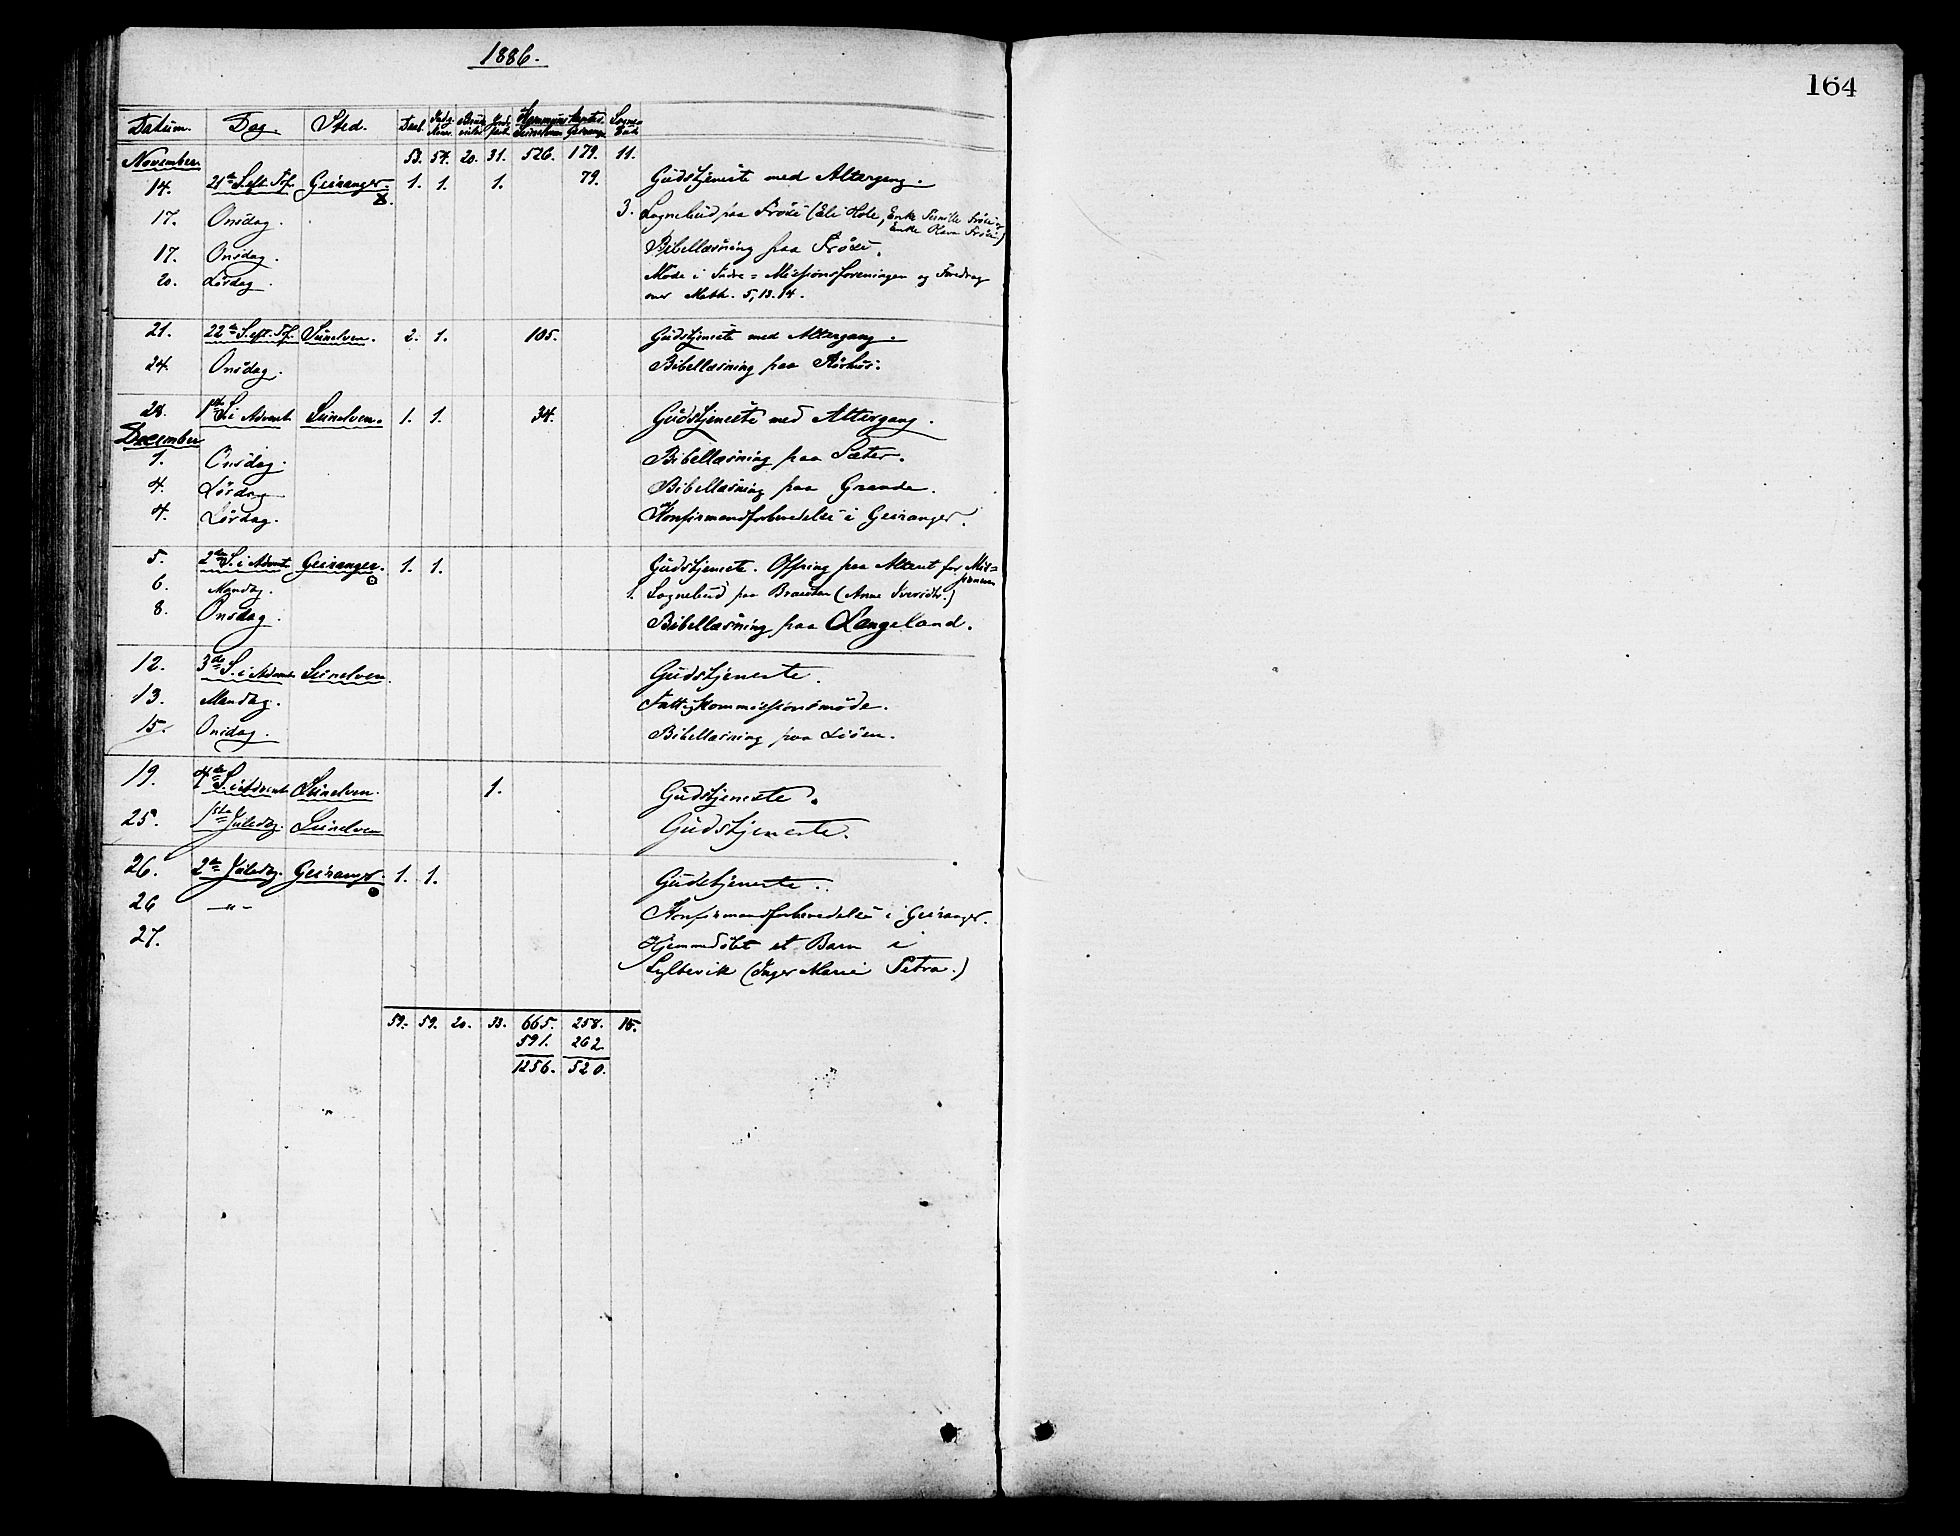 1886.
164
Datum. Dag. Sted. Daab Indg. Kone Brudevielse Jordfæst. Kommunikanter. Sunelven Geiranger Sognebud
November 53. 57. 20. 31. 526. 179. 11.
14. 21de S. eft. Tref. Geiranger. 1. 1. 1. 79. Gudstjeneste med Altergang.
17. Onsdag. 3. Sognebud paa Frøsi (Eli Hole, Enke Pernille Frøsi og
Enke Frøsi)
17. Onsdag. Bibellæsning paa Frøsi.
20. Lørdag. Møde i Indre-Missionsforeningen og Foredrag
over Math. 5,13.14.
21. 22de S. eft. Tref. Sunelven. 2. 1. 105. Gudstjeneste med Altergang.
24. Onsdag. Bibellæsning paa
28. 1ste S. i Advent Sunelven. 1. 1. 34. Gudstjeneste med Altergang.
December
1. Onsdag. Bibellæsning paa Sæter.
4. Lørdag Bibellæsning paa Grande.
4. Lørdag. Konfirmandforberedelse i Geiranger.
5. 2den S. i Advent Geiranger. 1. 1. Gudstjeneste. Offring paa Alteret for Mis=
sionen
6. Mandag. 1. Sognebud paa (Anne Iversdtr.)
8. Onsdag. Bibellæsning paa Langeland.
12. 3de S. i Advent Sunelven. Gudstjeneste.
13. Mandag. Fattigkommissionsmøde.
15. Onsdag. Bibellæsning paa
19. 4de S. i Advent Sunelven. 1. Gudstjeneste.
25. 1ste Juledag. Sunelven Gudstjeneste.
26. 2den Juledag. Geiranger. 1. 1. Gudstjeneste.
26 —"— Konfirmandforberedelse i Geiranger.
27. Hjemmedøbt et Barn i
Syltevik (Inger Marie Petra.)
59. 59. 20. 33. 665. 258. 15.
591. 262
1256. 520.